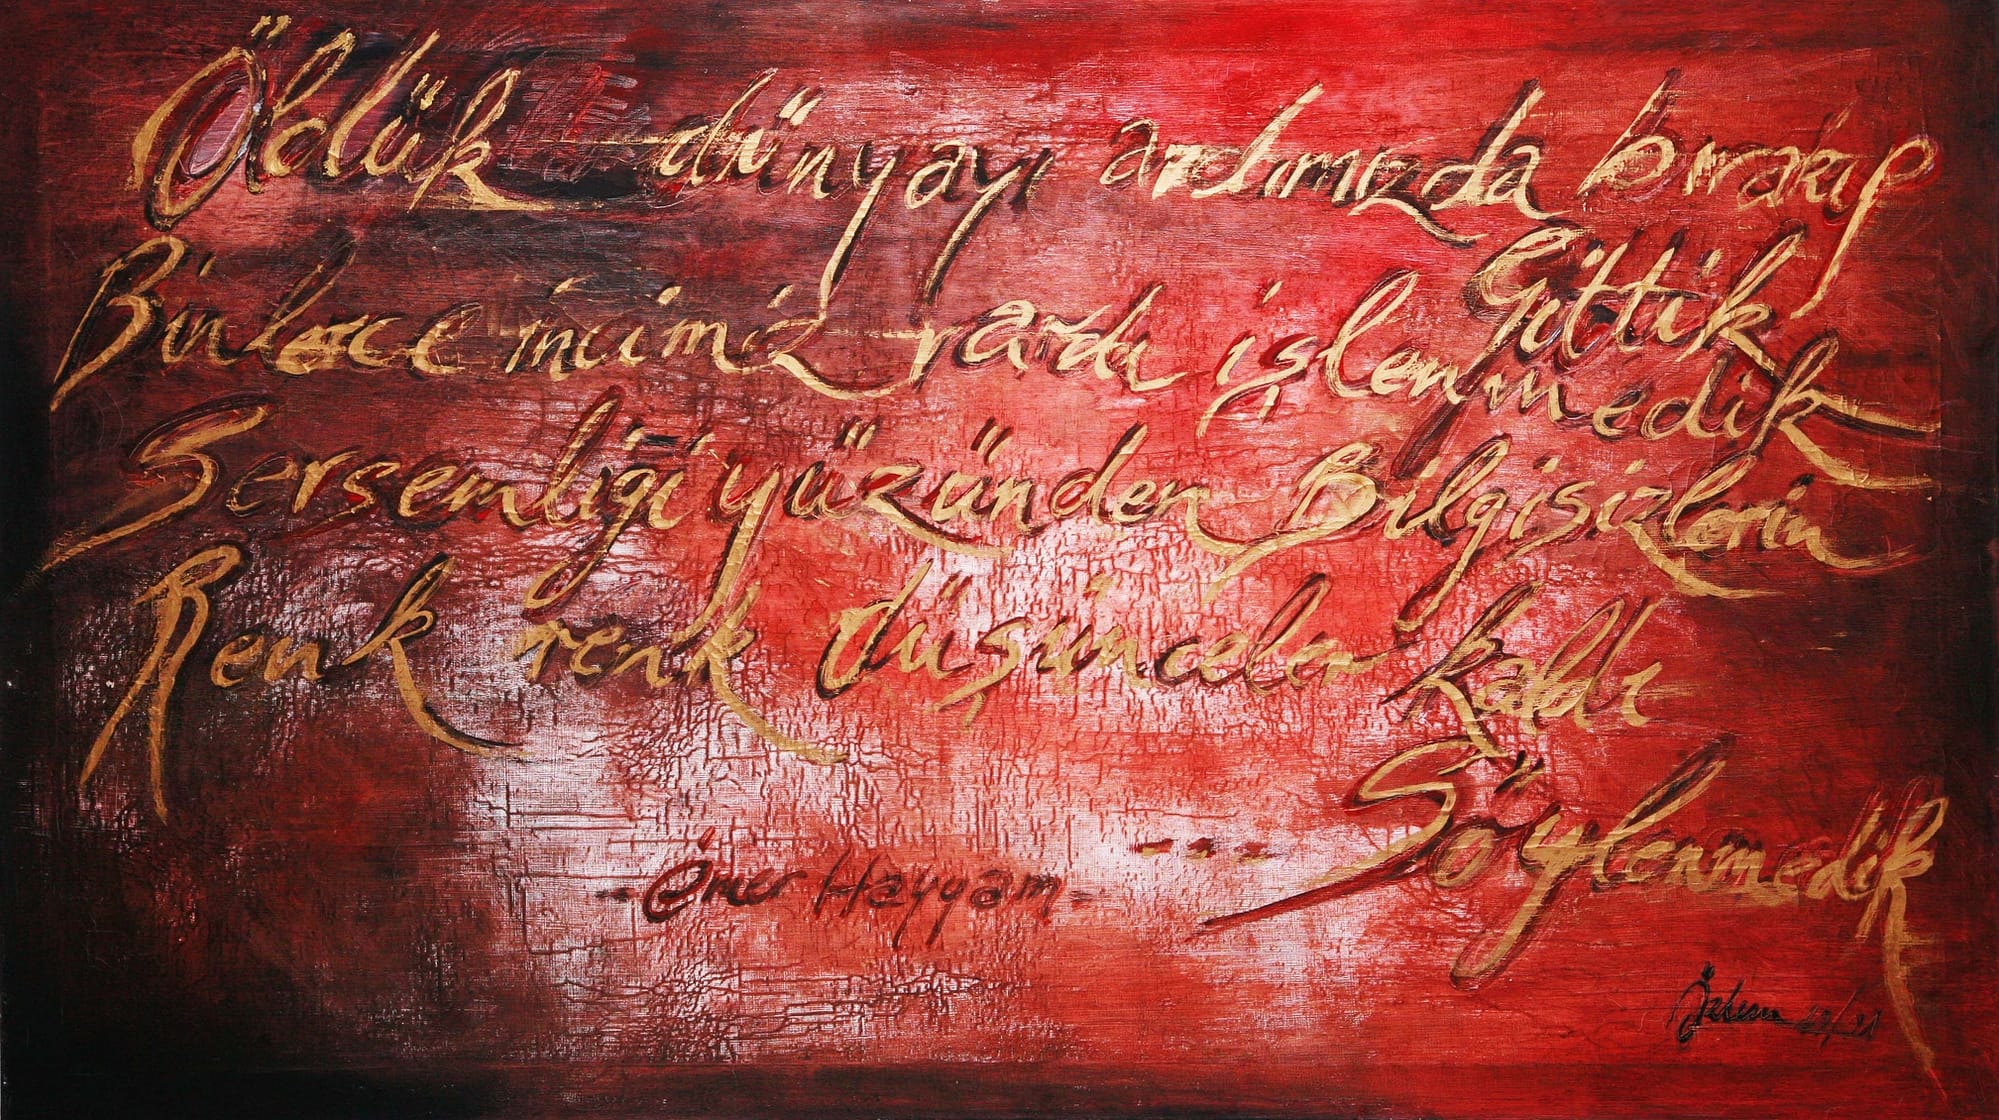 Öldük dünyayı ardımızda bırakıp
Gittik
Binlerce incimiz vardı işlenmedik
Sersemliği yüzünden Bilgisizlerin
Renk renk düşünceler kaldı
... Söylenmedik
- Ömer Hayyam -